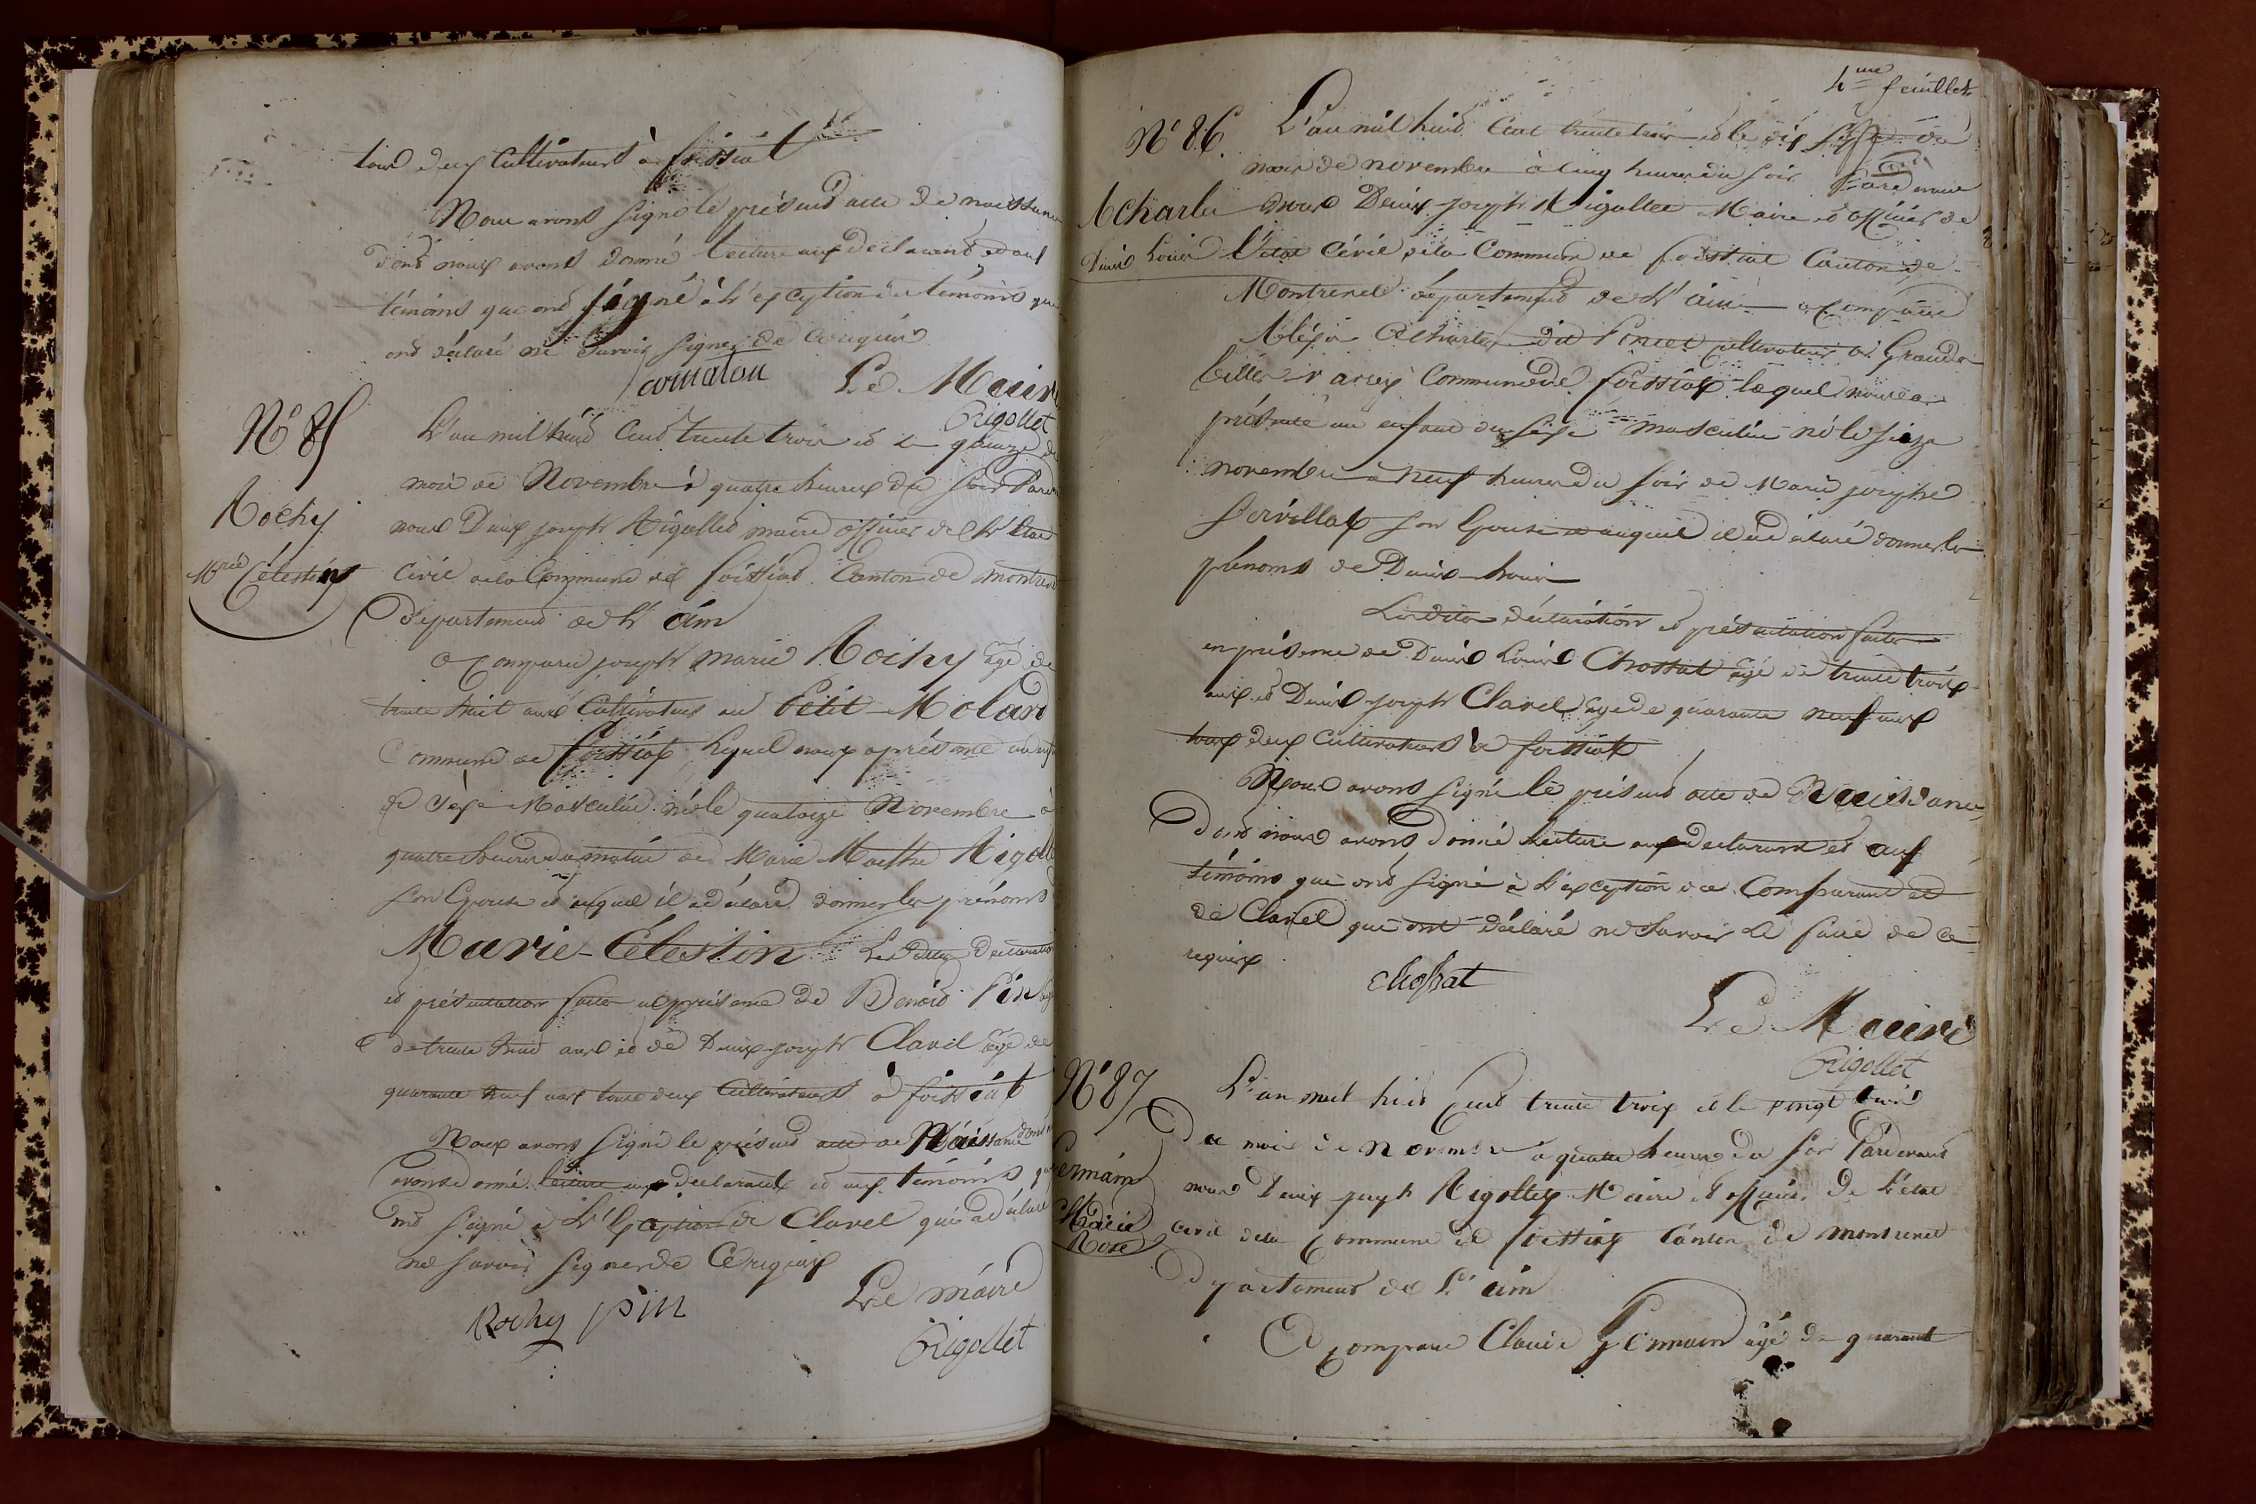 tous deux Cultivateurs à foissiat
Nous avons signé le présent acte de naissance
dont nous avons donné lecture aux déclarant et aux
témoins qui ont signé à l'exception des témoins qui
ont déclaré ne savoir signer de ce requis
Le Maire
Rigollet
N° 85
Rochy
Mrie Célestin
L'an mil huit Cent trente trois et le quinze du
mois de Novembre à quatre heures du soir Parde
nous Denis joseph Rigollet maire officier de l'état
Civil de la Commune de foissiat Canton de montrevel
département de l'ain
a Comparu joseph marie Rochy agé de
trente huit ans Cultivateur au Petit Molard
Commune de foissiat lequel nous a présenté un enfant
de sexe Masculin né le quatorze Novembre à
quatre heures du matin de Marie Marthe Rigollet
son Epouse et auquel il a déclaré donner les prénoms
Marie-Célestin Lesdites déclaration
et présentation faites en présence de Benoit Pin agé
de trente huit ans et de Denis-joseph Clavel agé de
quarante neuf ans tous deux Cultivateurs à foissiat
Nous avons signé le présent acte de Naissance dont nous
avons donné lecture aux déclarant et aux témoins qui
ont signé à l'Exception de Clavel qui a déclaré
ne savoir signer de Ce requis
Rochy pin
Le maire
Rigollet
4me feuillet
N° 86.
Acharles
Denis Louis
L'an mil huit Cent trente trois et le dix sept du
mois de novembre à Cinq heures du soir Pardevant
nous Denis-joseph Rigollet Maire et officier de
l'état Civil de la Commune de foissiat Canton de
Montrevel département de l'ain a Comparu
Acharles dit Pernet Cultivateur à Grands
Commune de foissiat lequel nous a
présenté un enfant du sexe masculin né le seize
novembre à neuf heures du soir de Marie josephe
Servillat son Epouse et auquel il a déclaré donner les
prénoms de Denis-Louis
Lesdites déclaration et présentation faites
en présence de Denis Louis Chossat agé de trente trois
ans et Denis-joseph Clavel agé de quarante neuf ans
tous deux Cultivateurs à foissiat
Nous avons signé le présent acte de Naissance,
dont nous avons donné lecture aux déclarant et aux
témoins qui ont signé à l'exception du Comparant et
de Clavel qui ont déclaré ne savoir le faire de ce
requis
chossat
Le Maire
Rigollet
N° 87
Germain
Marie
Rose
L'an mil huit Cent trente trois et le vingt trois
du mois de Novembre à quatre heures du soir Pardevant
nous Denis joseph Rigollet Maire et officier de l'état
Civil de la Commune de foissiat Canton de montrevel
département de l'ain
a Comparu Claude Germain agé de quarante